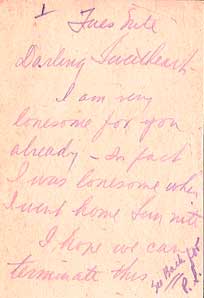 1
Tues Nite
Darling Sweetheart,
I am very
lonesome for you
already - In fact
I was lonesome when
I went home Sun nite
I hope we can
terminate this
See Back for
P.S.